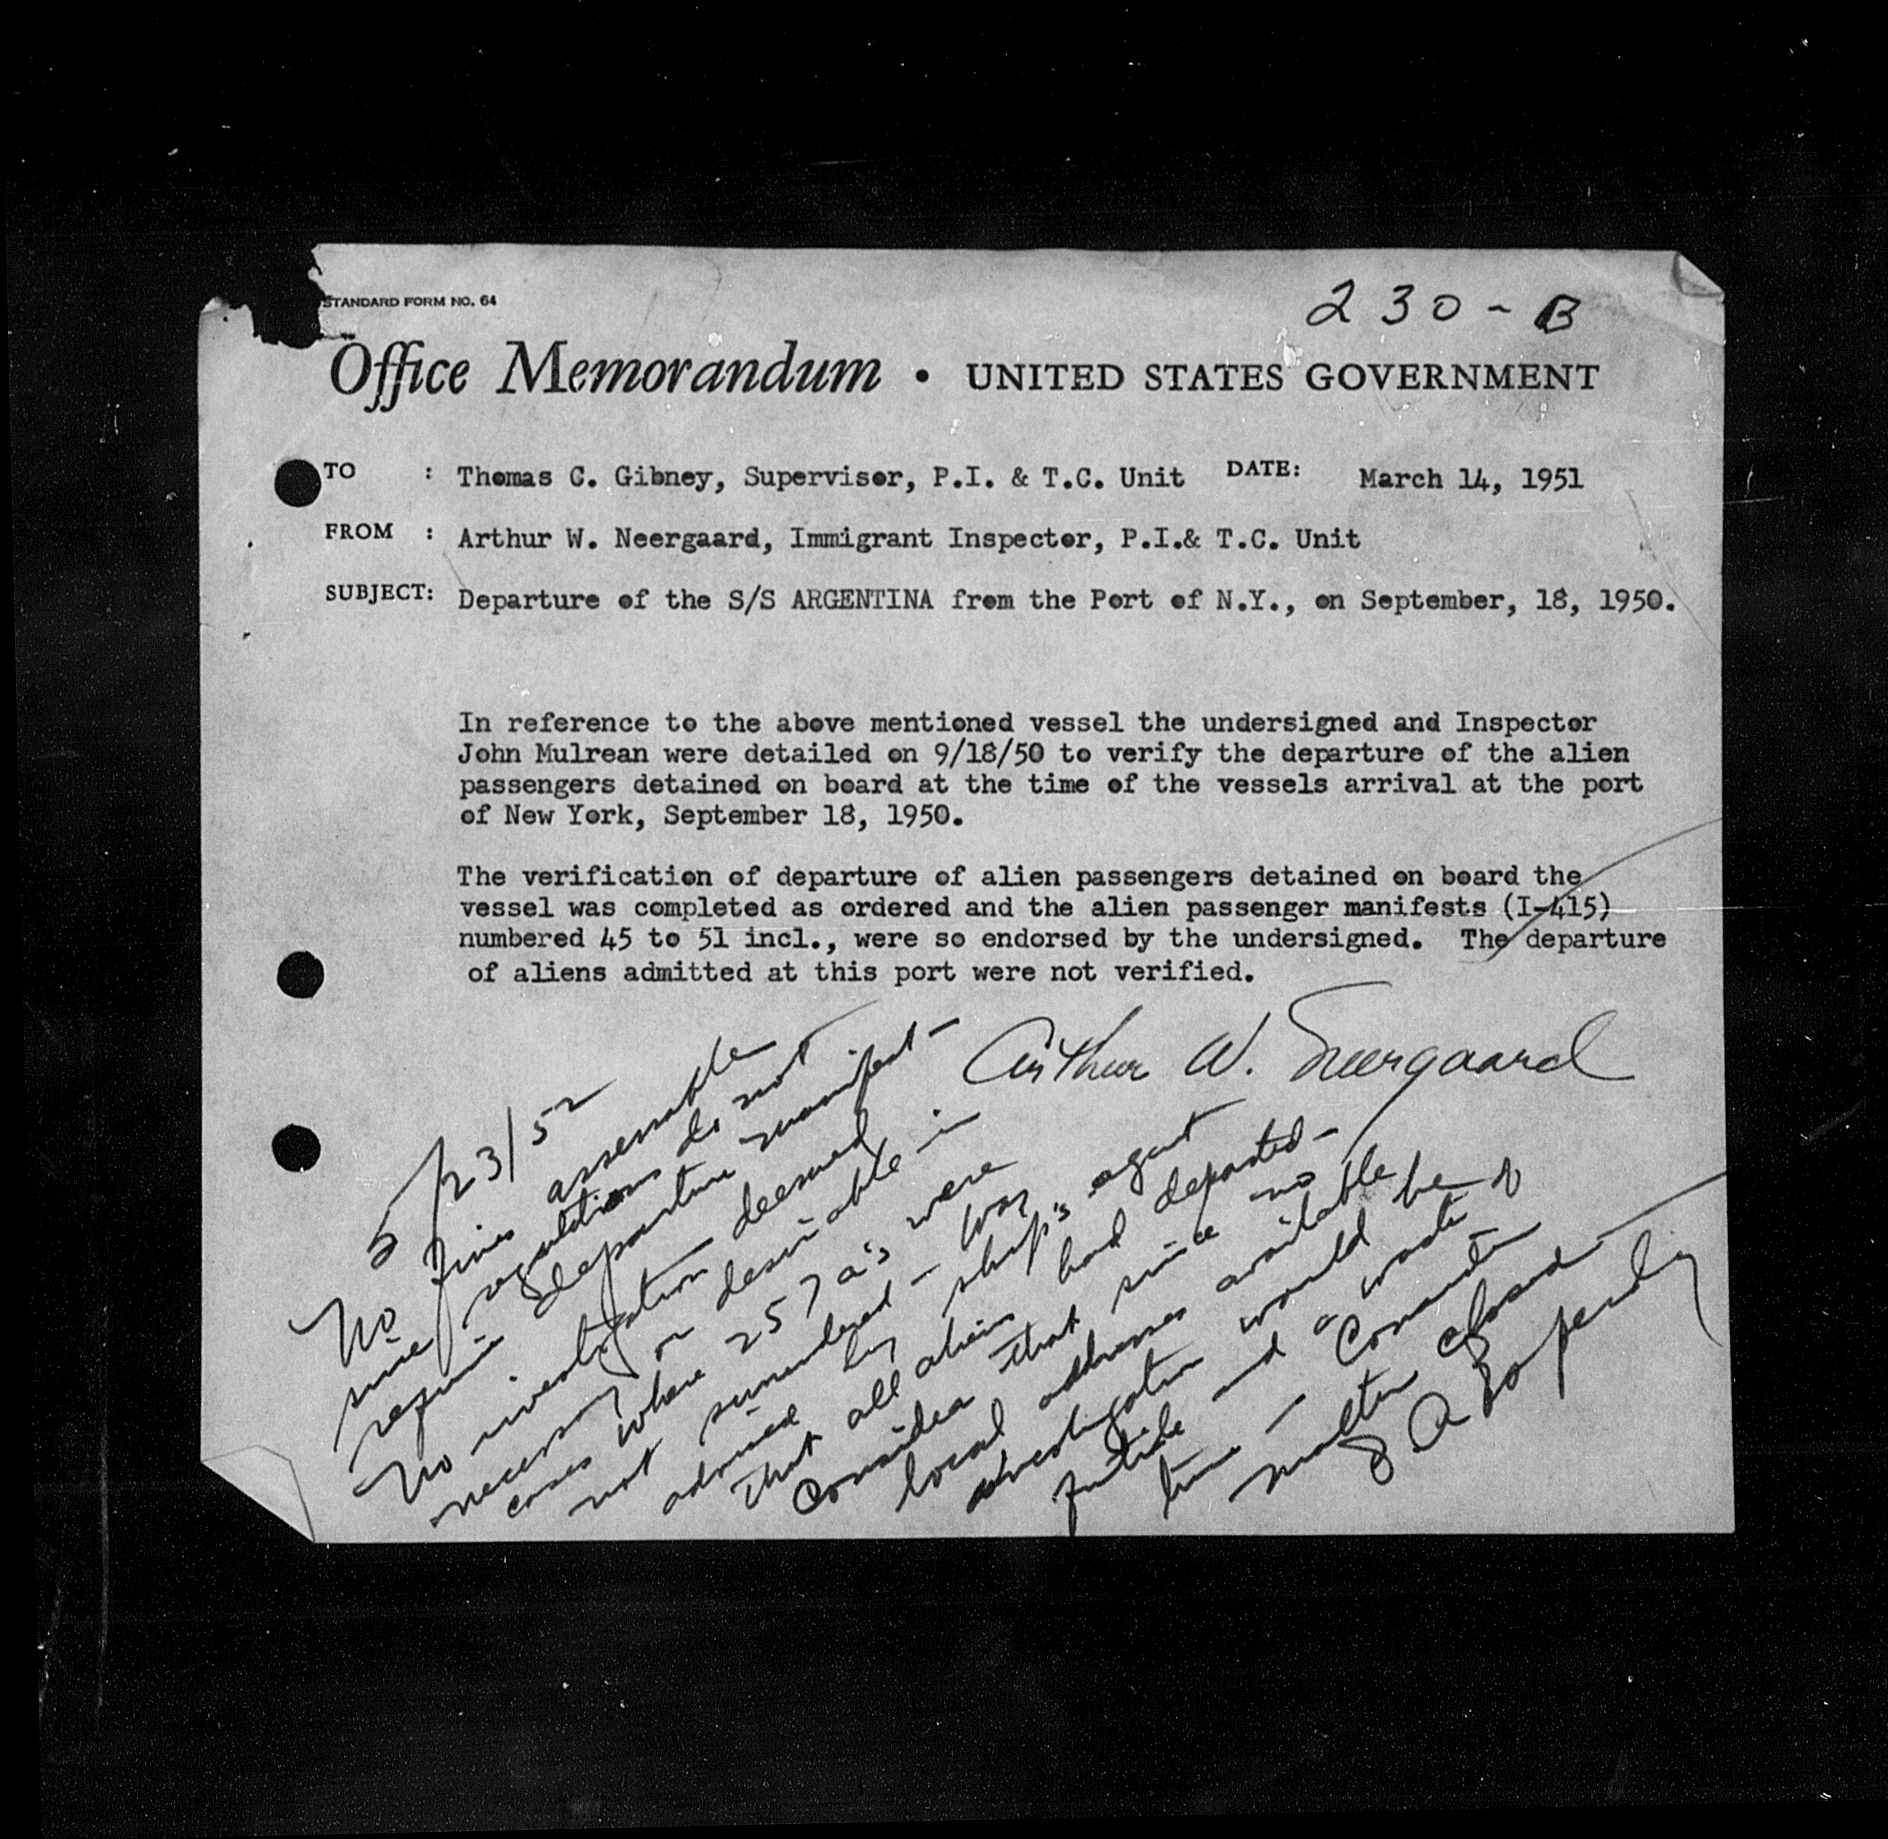 STANDARD FORM NO. 64
230-B
Office Memorandum • UNITED STATES GOVERNMENT
TO : Thomas C. Gibney, Supervisor, P.I. & T.C. Unit DATE: March 14, 1951
FROM : Arthur W. Neergaard, Immigrant Inspector, P.I.& T.C. Unit
SUBJECT: Departure of the S/S ARGENTINA from the Port of N.Y., on September, 18, 1950.
In reference to the above mentioned vessel the undersigned and Inspector
John Mulrean were detailed on 9/18/50 to verify the departure of the alien
passengers detained on board at the time of the vessels arrival at the port
of New York, September 18, 1950.
The verification of departure of alien passengers detained on board the
vessel was completed as ordered and the alien passenger manifests (I-415)
numbered 45 to 51 incl., were so endorsed by the undersigned. The departure
of aliens admitted at this port were not verified.
Arthur W. Neergaard
5/23/52
No fines assessable
since regulations do not
require departure manifest-
No investigation deemed
necessary or desirable in
cases where 257a's were
not surrendered - Was
advised by ship's agent
that all aliens had departed-
Consider that since no
local addresses available
investigation would be
futile and a waste of
time - Consider
matter closed